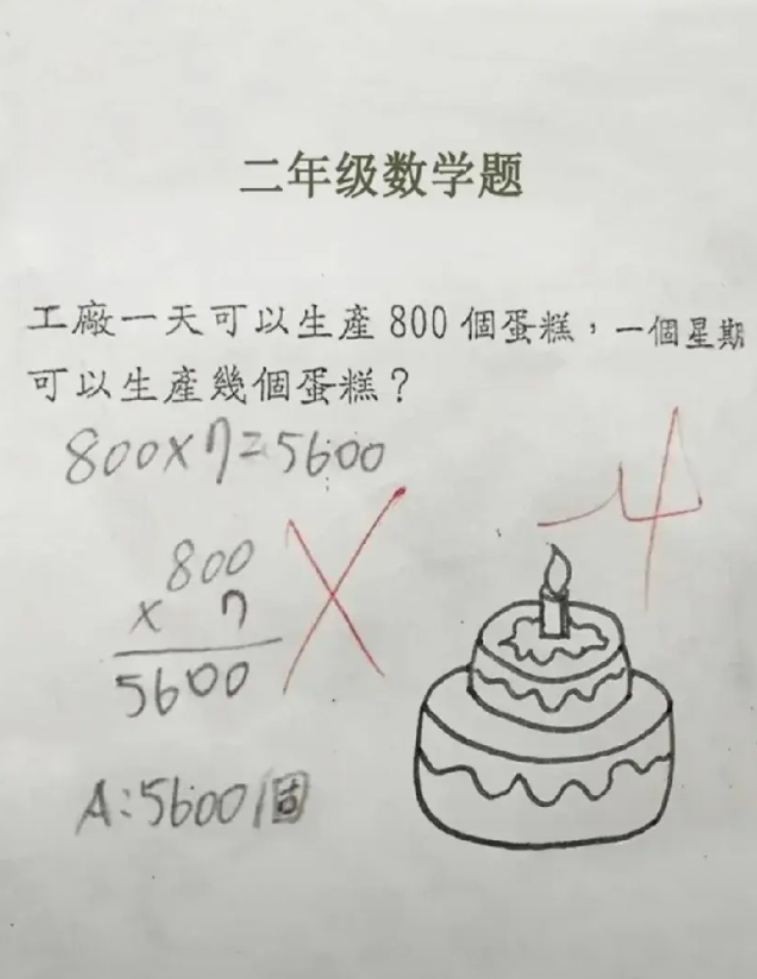 二年级数学题
工廠一天可以生產 800 個蛋糕，一個星期
可以生產幾個蛋糕？
800×7=5600
-4
800
× 7
5600
A:5600個